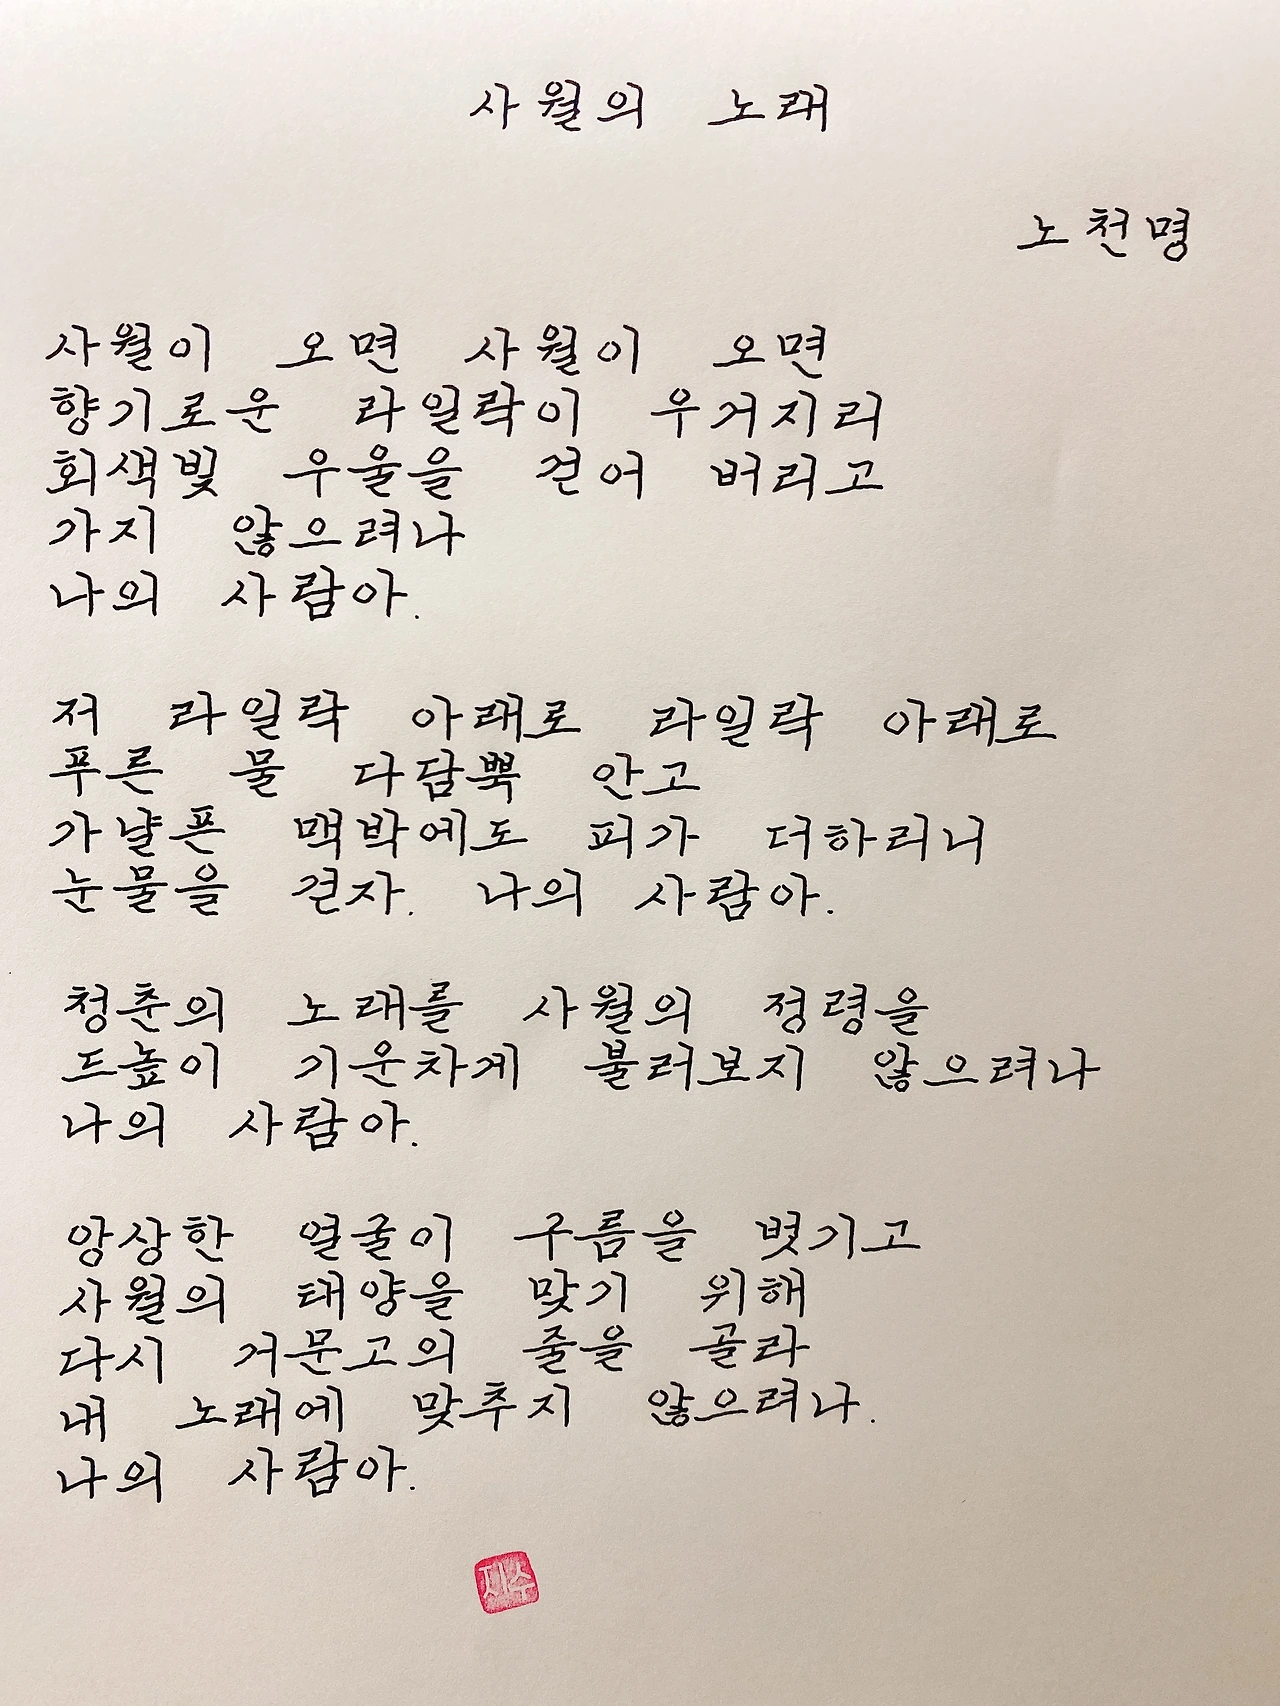 사월의 노래
노천명
사월이 오면 사월이 오면
향기로운 라일락이 우거지리
회색빛 우울을 걷어 버리고
가지 않으려나
나의 사람아.
저 라일락 아래로 라일락 아래로
푸른 물 다담뿍 안고
가냘픈 맥박에도 피가 더하리니
눈물을 걷자. 나의 사람아.
청춘의 노래를 사월의 정령을
드높이 기운차게 불러보지 않으려나
나의 사람아.
앙상한 얼굴이 구름을 벗기고
사월의 태양을 맞기 위해
다시 거문고의 줄을 골라
내 노래에 맞추지 않으려나.
나의 사람아.